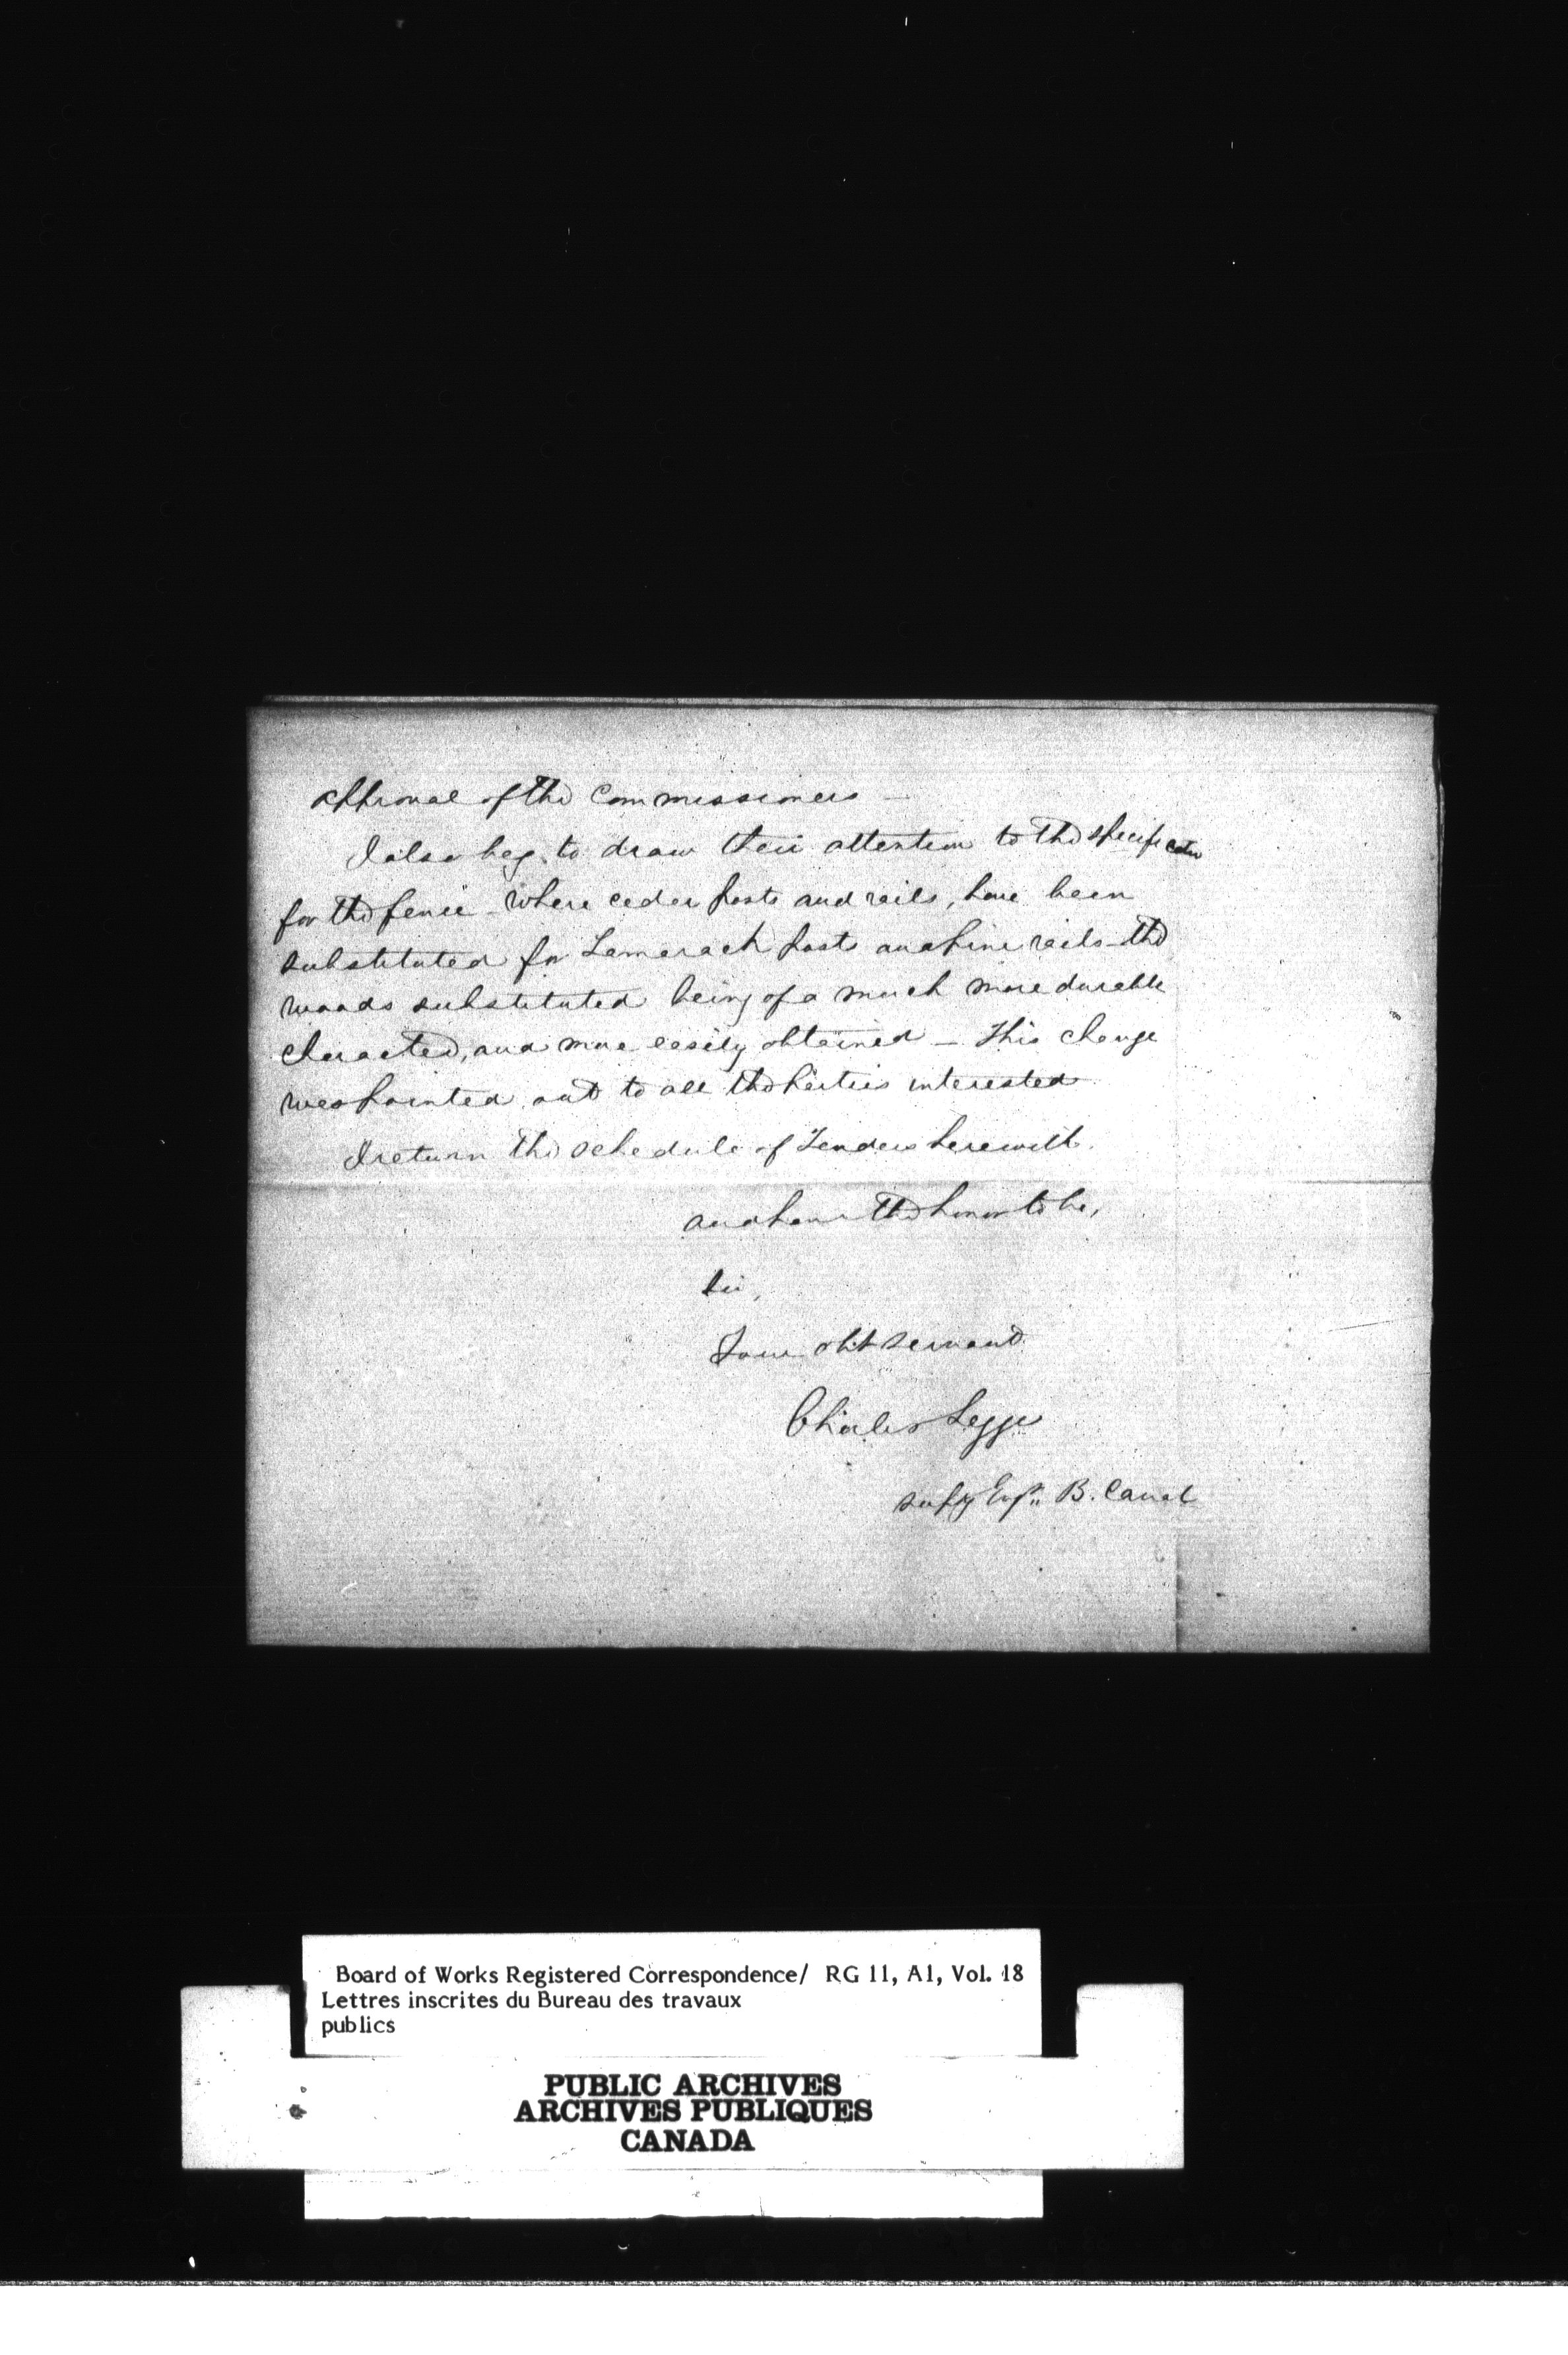 approval of the Commissioners —
I also beg to draw their attention to the specification
for the fence – where cedar posts and rails, have been
substituted for Tamarack posts and pine rails – the
woods substituted being of a much more durable
character, and more easily obtained – This change
was pointed out to all the parties interested
I return the schedule of Tenders herewith.
and have the honor to be,
Sir,
Your obt servant
Charles Legge
Supg Engr. B. Canal
Board of Works Registered Correspondence/ RG 11, A1, Vol. 18
Lettres inscrites du Bureau des travaux
publics
PUBLIC ARCHIVES
ARCHIVES PUBLIQUES
CANADA